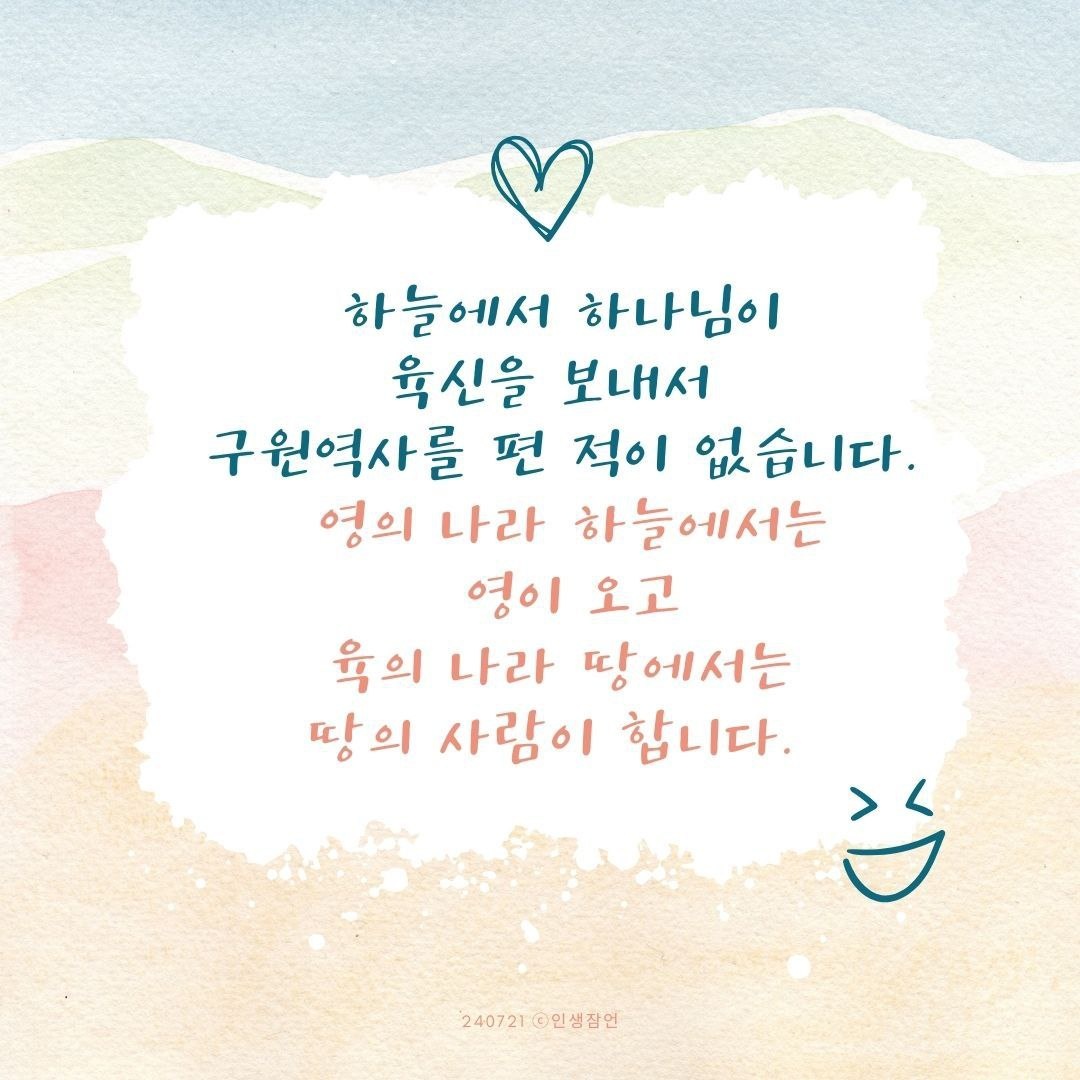 하늘에서 하나님이
육신을 보내서
구원역사를 편 적이 없습니다.
영의 나라 하늘에서는
영이 오고
육의 나라 땅에서는
땅의 사람이 합니다.
240721 ⓒ인생잠언